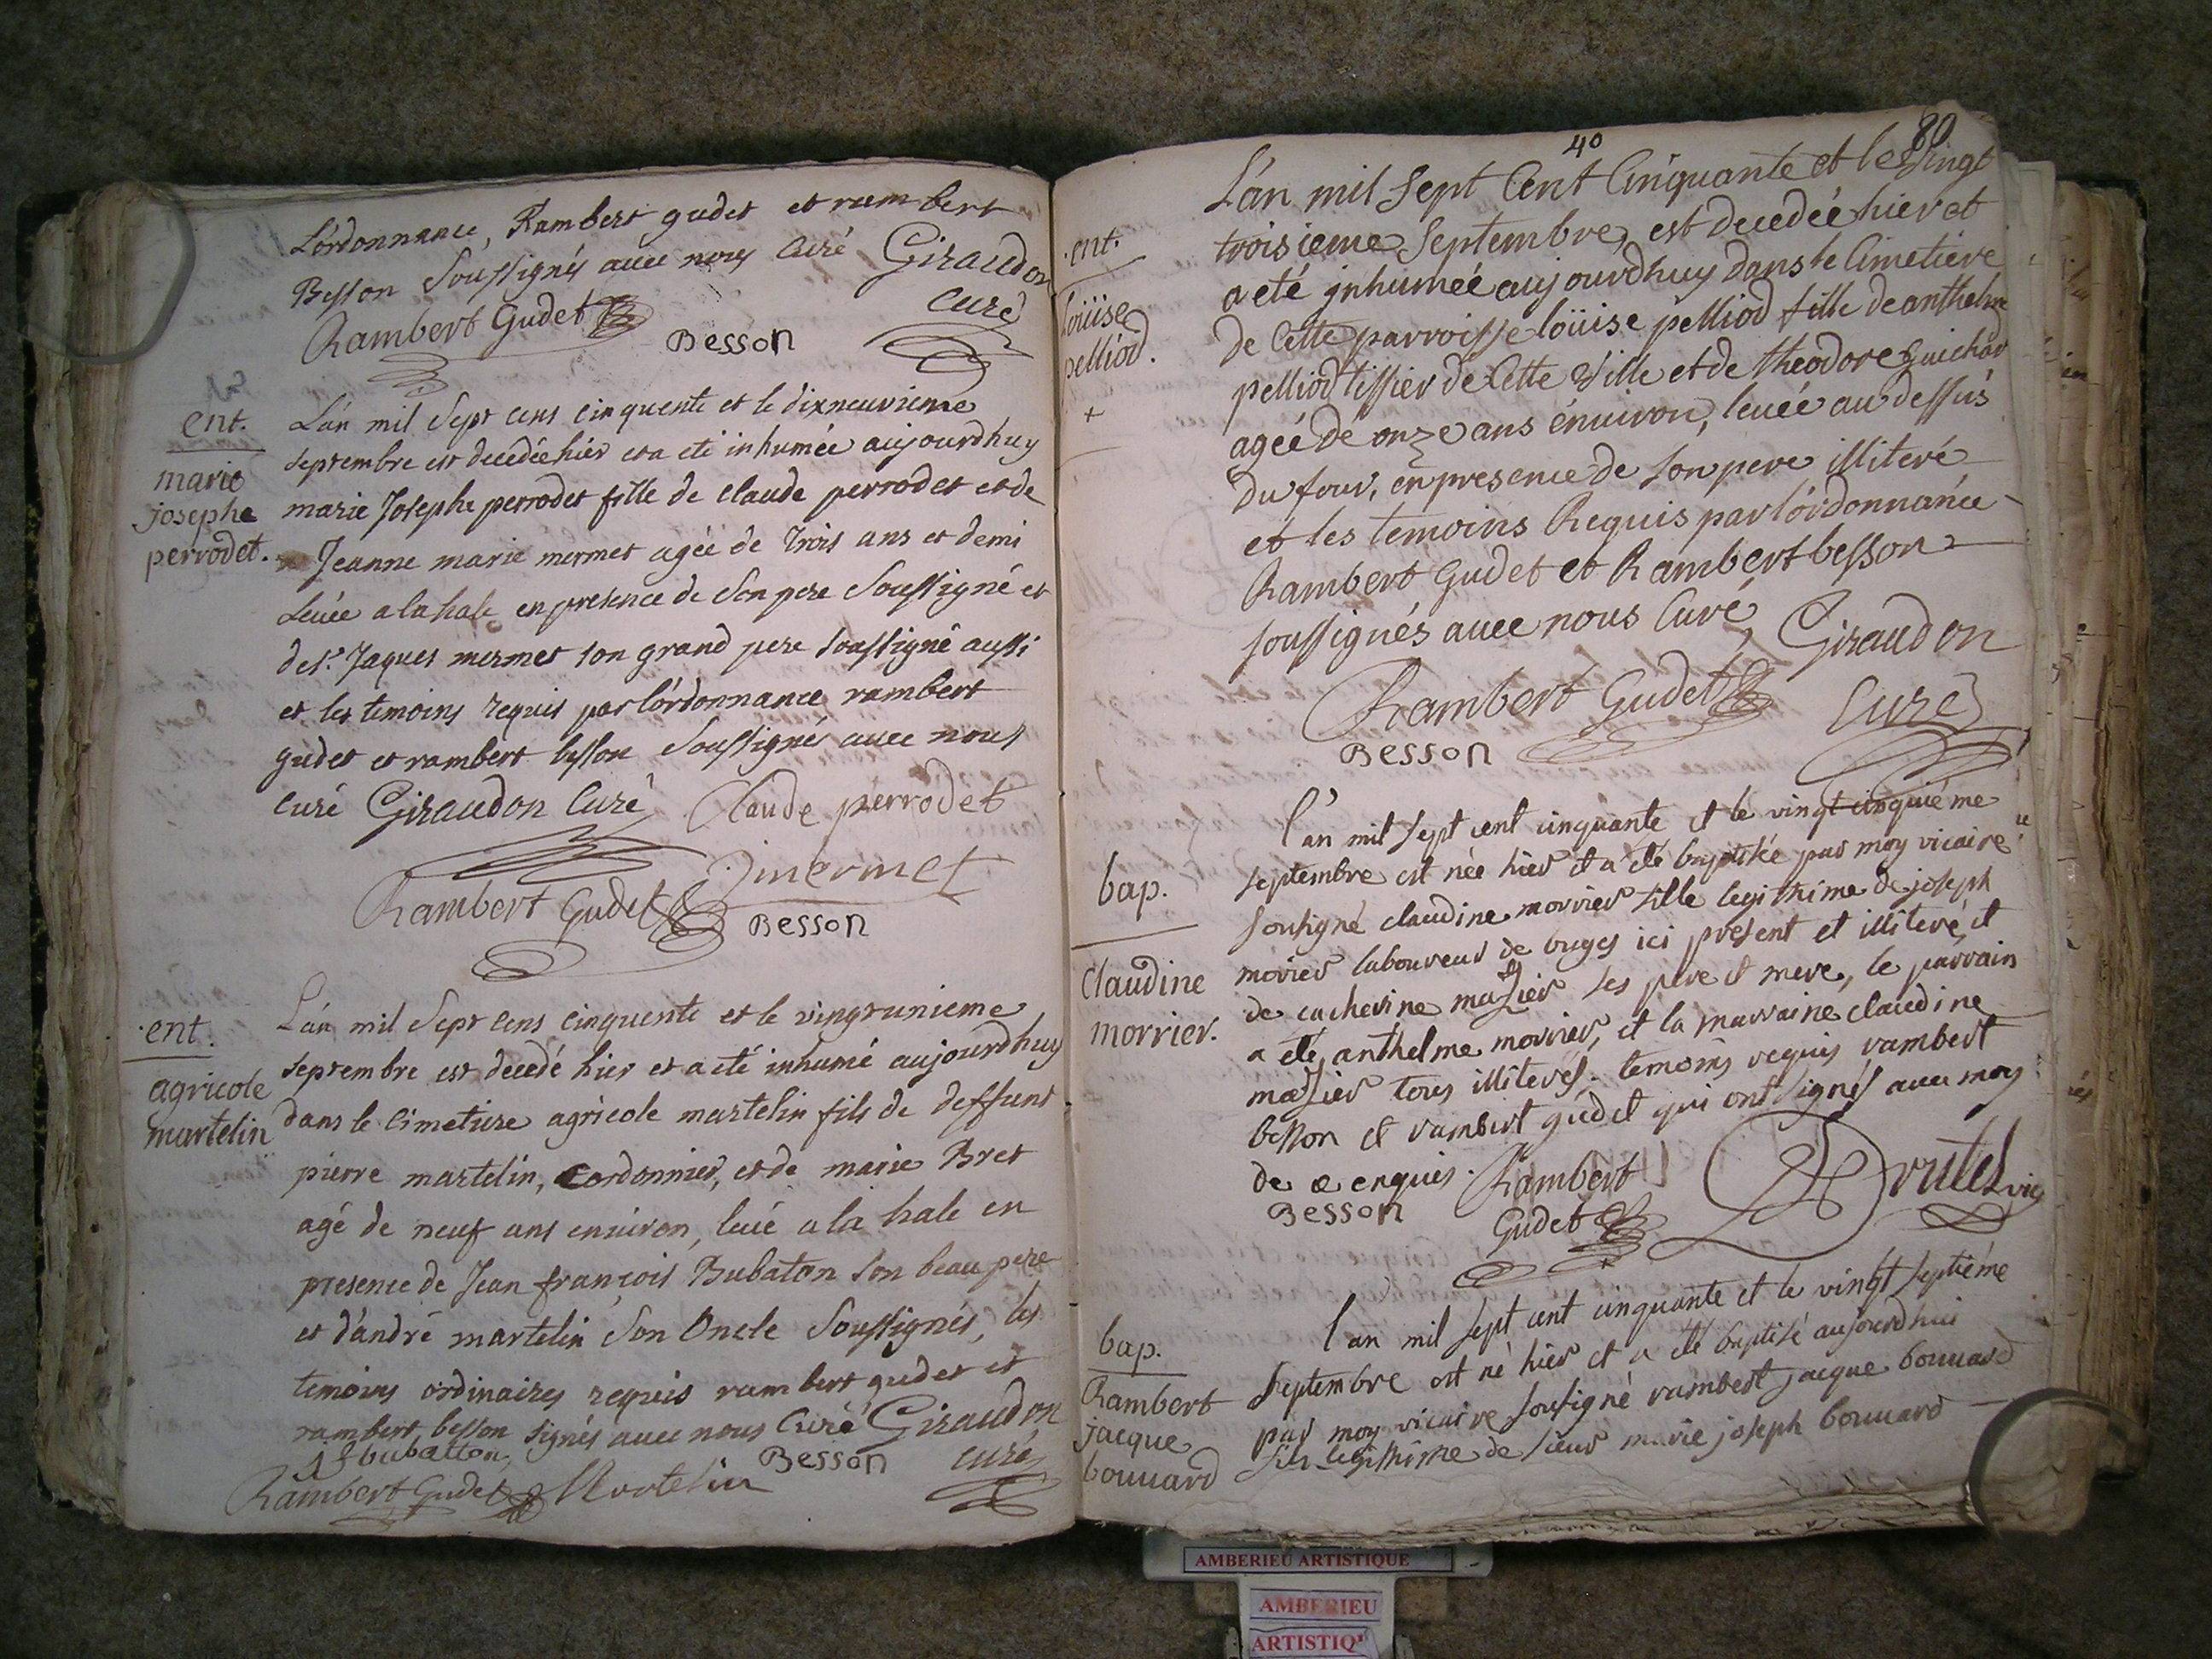 L'ordonnance, Rambert gudet et rambert
Besson Soussignés avec nous Curé Giraudon
Curé
Rambert Gudet
Besson
ent.
marie
josephe
perrodet.
L'an mil Sept cens cinquente et le dixneuvieme
septembre est decedée hier et a eté inhumée aujourdhuy
marie Josephe perrodet fille de claude perrodet et de
Jeanne marie mermet agée de Trois ans et demi
Levée a la hale en presence de Son pere Soussigné et
de sr. Jaques mermet son grand pere soussigné aussi
et les temoins requis par l'ordonnance rambert
gudet et rambert besson Soussignés avec nous
curé Giraudon Curé Claude perrodet
mermet
Rambert Gudet
Besson
ent.
agricole
martelin
L'an mil Sept cens cinquente et le vingtunieme
septembre est decedé hier et a eté inhumé aujourdhuy
dans le Cimetiere agricole martelin fils de deffunt
pierre martelin, Cordonnier, et de marie Bret
agé de neuf ans environ, levé a la hale en
presence de Jean françois Bubaton son beau pere
et d'andré martelin Son Oncle Soussignés, les
temoins ordinaires requis rambert gudet et
rambert besson signés avec nous Curé Giraudon
curé
bubatton
Besson
Rambert Gudet Martelin
40
80
ent.
loüise
pelliod.
+
L'an mil Sept Cent Cinquante et le Vingt
troisieme Septembre, est decedeé hier et
a eté inhumeé aujourdhuy dans le Cimetiere
de Cette parroisse loüise pelliod fille de anthelme
pelliod tissier de Cette Ville et de theodore guichard
ageé de onze ans énviron, leveé au dessus
du four, en presence de son pere illiteré
et les temoins Requis par l'ordonnance
Rambert Gudet et Rambert besson
soussignés avec nous Curé, Giraudon
Curé
Rambert Gudet
Besson
bap.
Claudine
morrier.
l'an mil sept cent cinquante et le vingt cinquiéme
septembre est née hier et a été baptisée par moy vicaire
sousigné claudine morrier fille legithime de joseph
morier laboureur de buges ici present et illiteré, et
de catherine mazier ses pere et mere, le parrain
a été anthelme morrier, et la marraine claudine
mazier tous illiterés. temoins requis rambert
besson et rambert gudet qui ont signés avec moy
de ce enquis. Rambert
Besson
Gudet
Drutel vic
bap.
Rambert
jacque
bouvard
l'an mil sept cent cinquante et le vingt septiéme
septembre est né hier et a été baptisé aujourdhui
par moy vicaire sousigné rambert jacque bouvard
fils legithime de sieur marie joseph bouvard
AMBERIEU ARTISTIQUE
AMBERIEU
ARTISTIQ